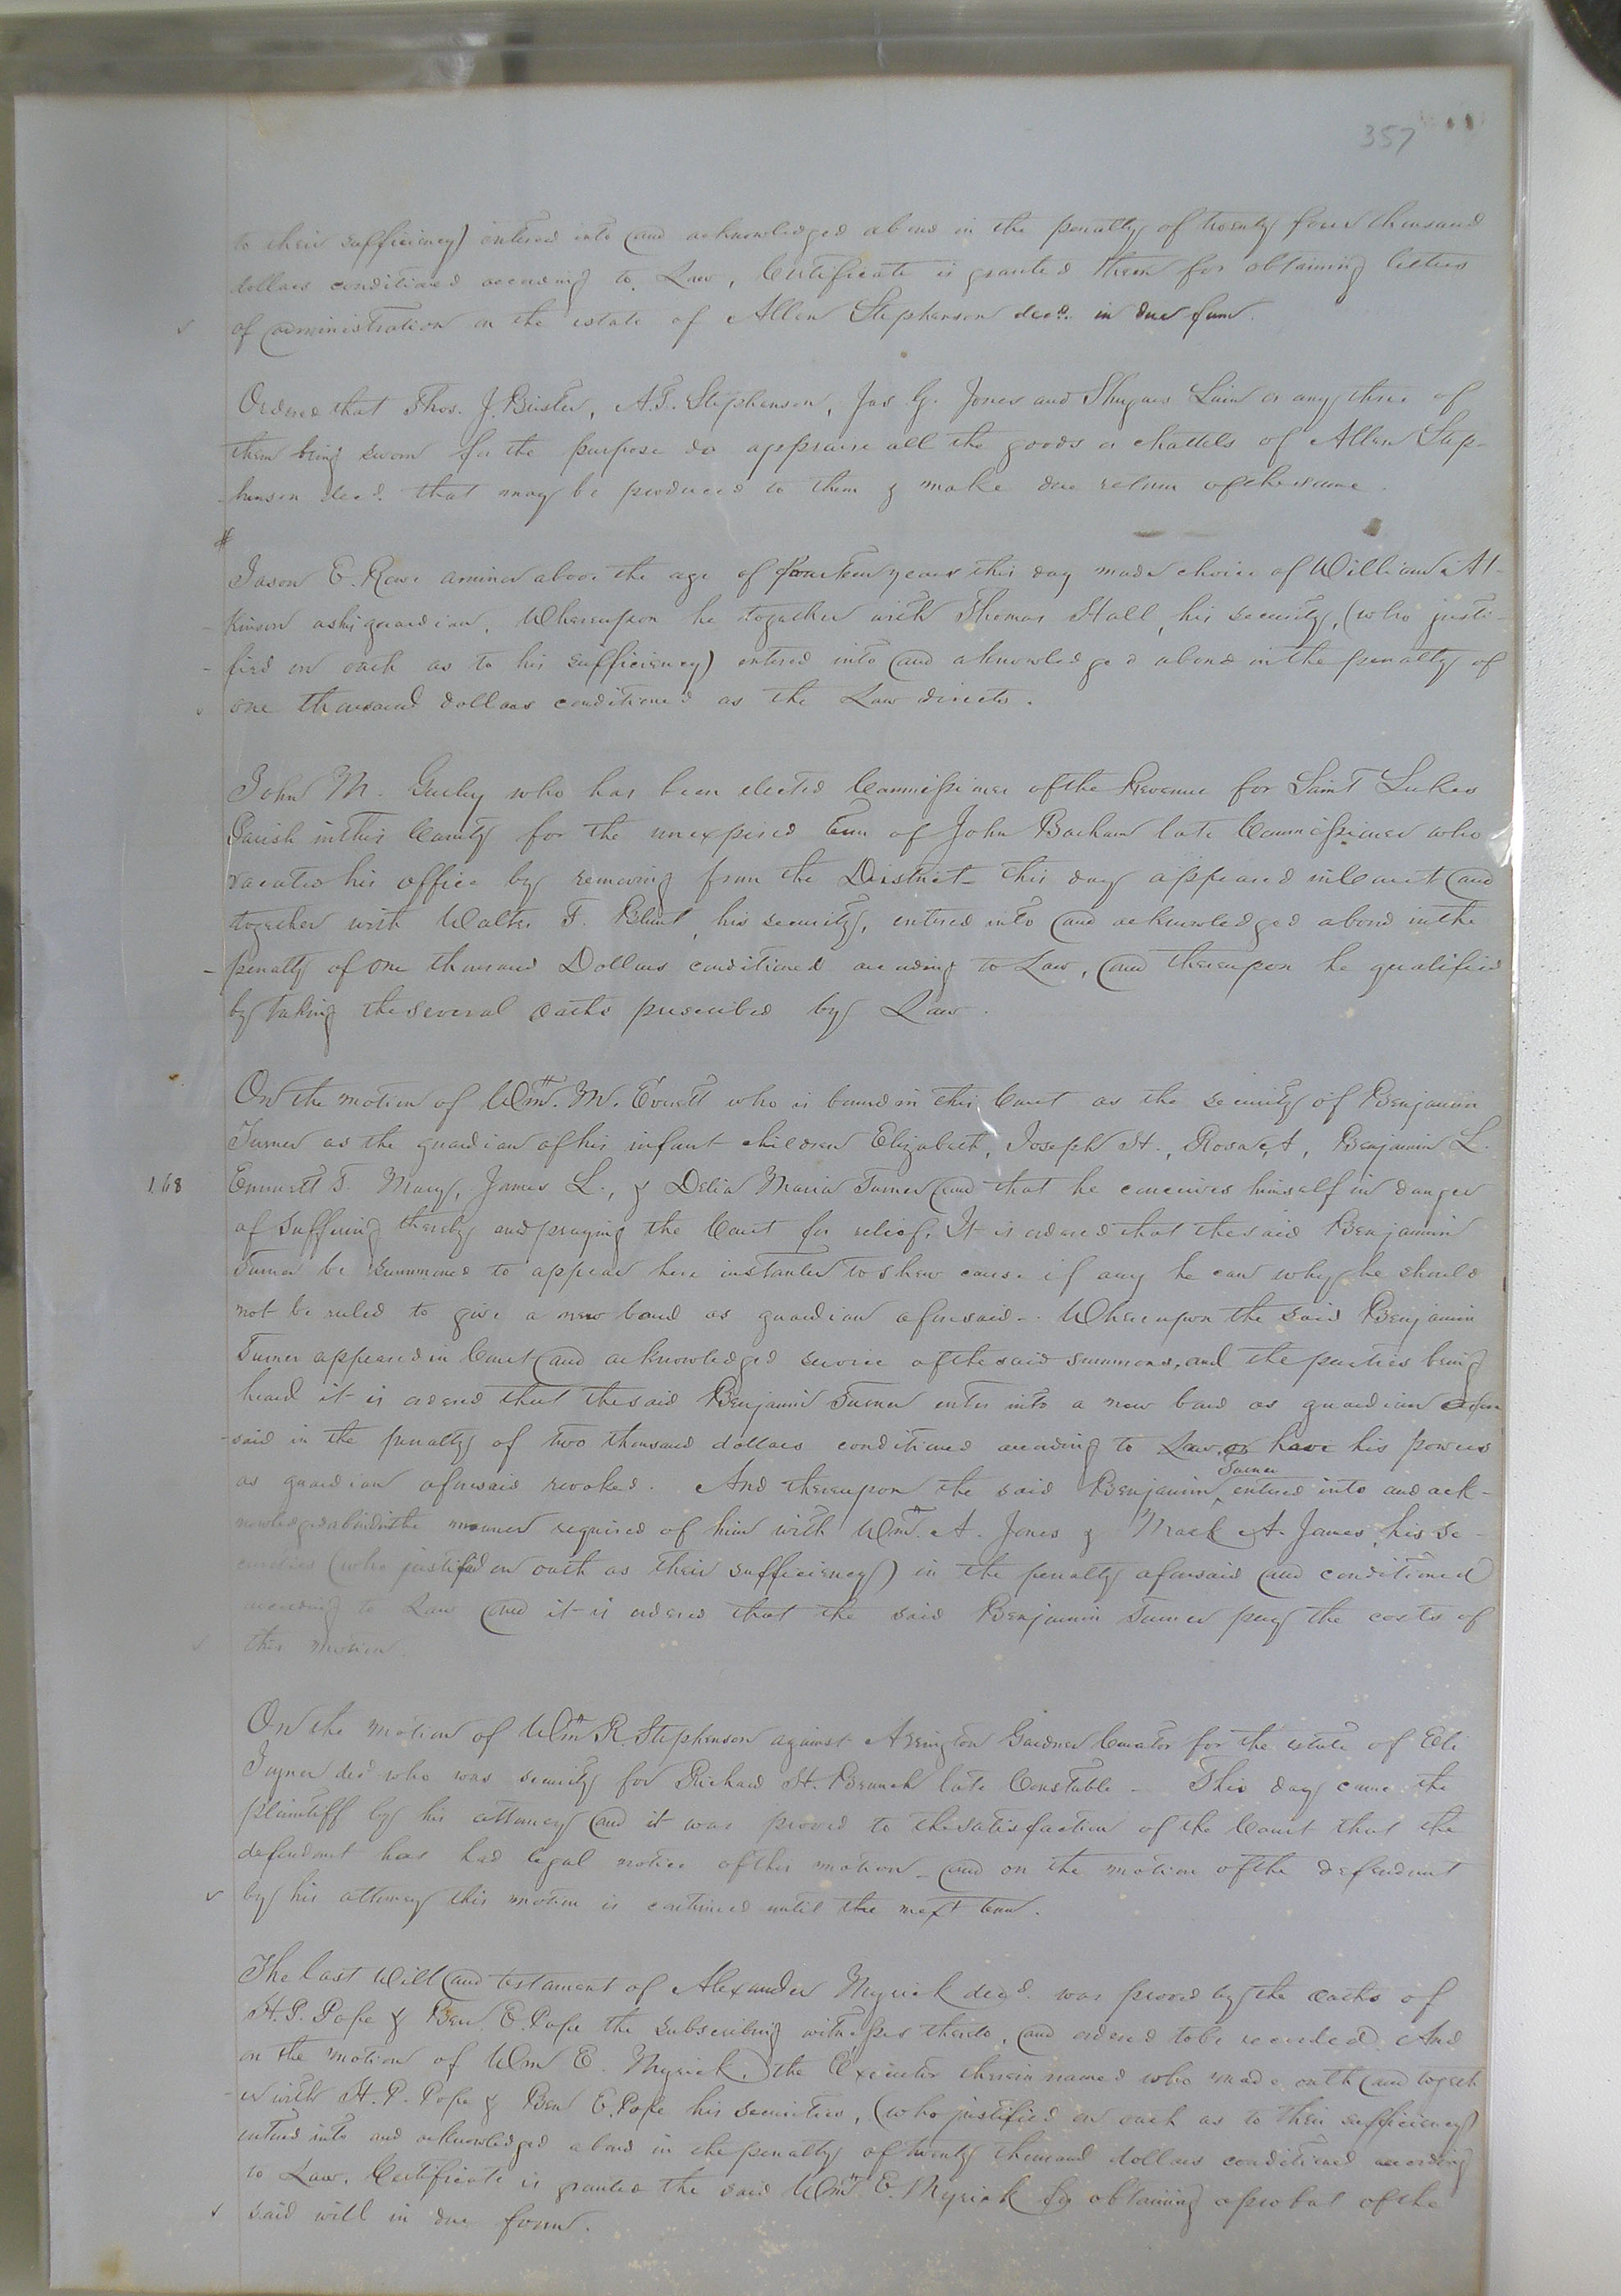 357
to their sufficiency) entered into and acknowledged a bond in the penalty of twenty four thousand
dollars conditioned according to Law, Certificate is granted them for obtaining letters
of administration on the estate of Allen Stephenson decd. in due form.
Ordered that Thos. J. Brister, A.T. Stephenson, Jas G. Jones and Shugars Lain or any three of
them being sworn for the purpose do appraise all the goods or chattels of Allen Step-
-henson decd. that may be produced to them & make due return of the same.
Jason E. Rowe a minor above the age of fourteen years this day made choice of William At-
-kinson as his guardian. Whereupon he together with Thomas Hall, his security, (who justi-
-fied on oath as to his sufficiency) entered into and acknowledged a bond in the penalty of
one thousand dollars conditioned as the Law directs.
John M. Gurley who has been elected Commissioner of the Revenue for Saint Lukes
Parish in this County for the unexpired term of John Barham late Commissioner who
vacated his office by removing from the District - this day appeared in Court and
together with Walter F. Blunt, his security, entered into and acknowledged a bond in the
-penalty of one thousand Dollars conditioned according to Law, and thereupon he qualified
by taking the several oaths prescribed by Law.
On the motion of Wm. M. Everett who is bound in this Court as the security of Benjamin
Turner as the guardian of his infant children Elizabeth, Joseph H., Rosa A, Benjamin L.
1.68 Emmett T. Mary, James L., & Delia Maria Turner and that he conceives himself in danger
of suffering thereby and praying the Court for relief, It is ordered that the said Benjamin
Turner be summoned to appear here instanter to shew cause if any he can why he should
not be ruled to give a new bond as guardian aforesaid. Whereupon the said Benjamin
Turner appeared in Court and acknowledged service of the said summons, and the parties being
heard it is ordered that the said Benjamin Turner enter into a new bond as guardian afore
-said in the penalty of two thousand dollars conditioned according to Law, or have his powers
as guardian aforesaid revoked. And thereupon the said Benjamin Turner entered into and ack-
nowledged a bond in the manner required of him with Wm. A. Jones & Mark A. James, his se-
curities (who justified on oath as their sufficiency) in the penalty aforesaid and conditioned
according to Law and it is ordered that the said Benjamin Turner pay the costs of
this motion.
On the motion of Wm R. Stephenson against Arington Gardner Curator for the estate of Eli
Joyner decd who was security for Richard H. Branch late Constable - This day came the
plaintiff by his attorney and it was proved to the satisfaction of the Court that the
defendant has had legal notice of this motion - and on the motion of the defendant
by his attorney this motion is continued until the next term.
The last Will and testament of Alexander Myrick decd. was proved by the oaths of
H.P. Pope & Ben E. Pope the subscribing witnesses thereto, and ordered to be recorded. And
on the motion of Wm E. Myrick, the Executor therein named who made oath and togeth
-er with H.P. Pope & Ben E. Pope his securities, (who justified on oath as to their sufficiency)
entered into and acknowledged a bond in the penalty of twenty thousand dollars conditioned according
to Law. Certificate is granted the said Wm. E. Myrick for obtaining a probat of the
said will in due form.